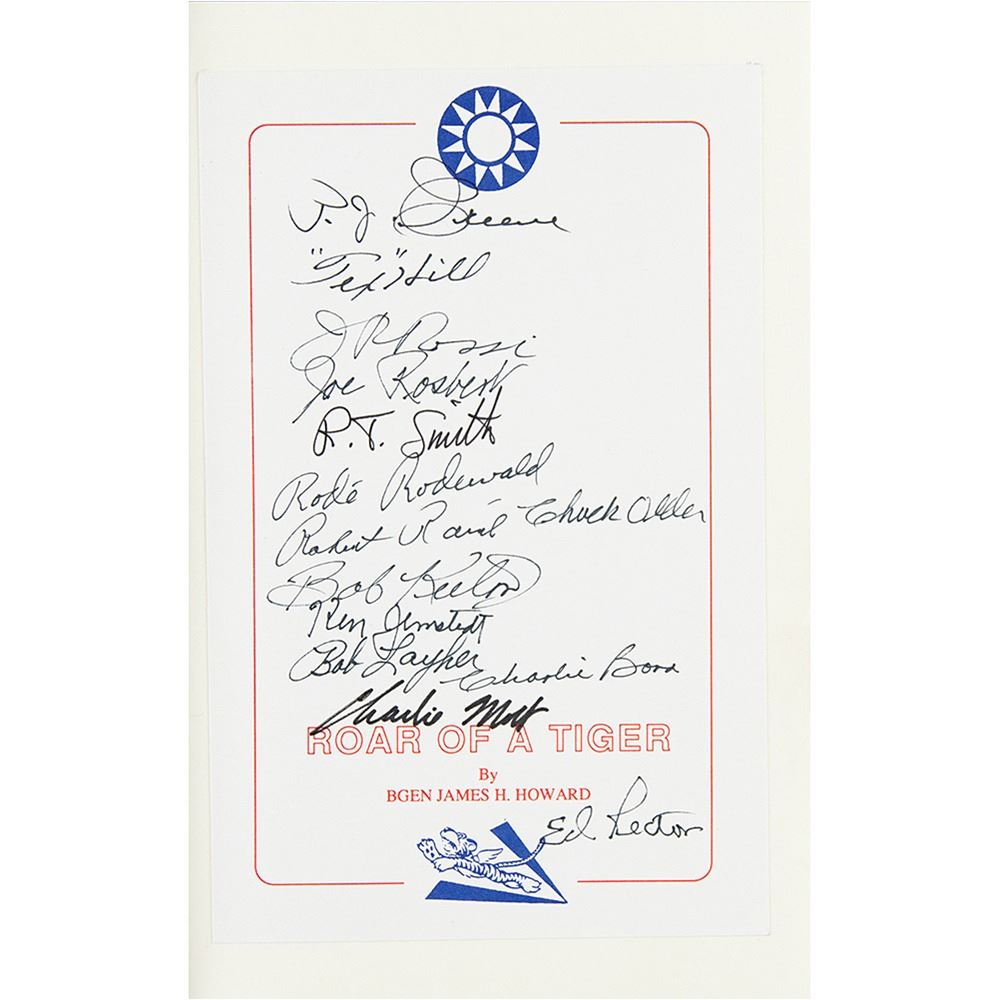 P. J. Greene
"Tex" Hill
J R Rossi
Joe Rosbert
R.T. Smith
Rodé Rodewald
Robert Raine Chuck Older
Bob Keeton
Ken Jernstedt
Bob Layher
Charlie Bond
Charlie Mott
ROAR OF A TIGER
By
BGEN JAMES H. HOWARD
Ed Rector